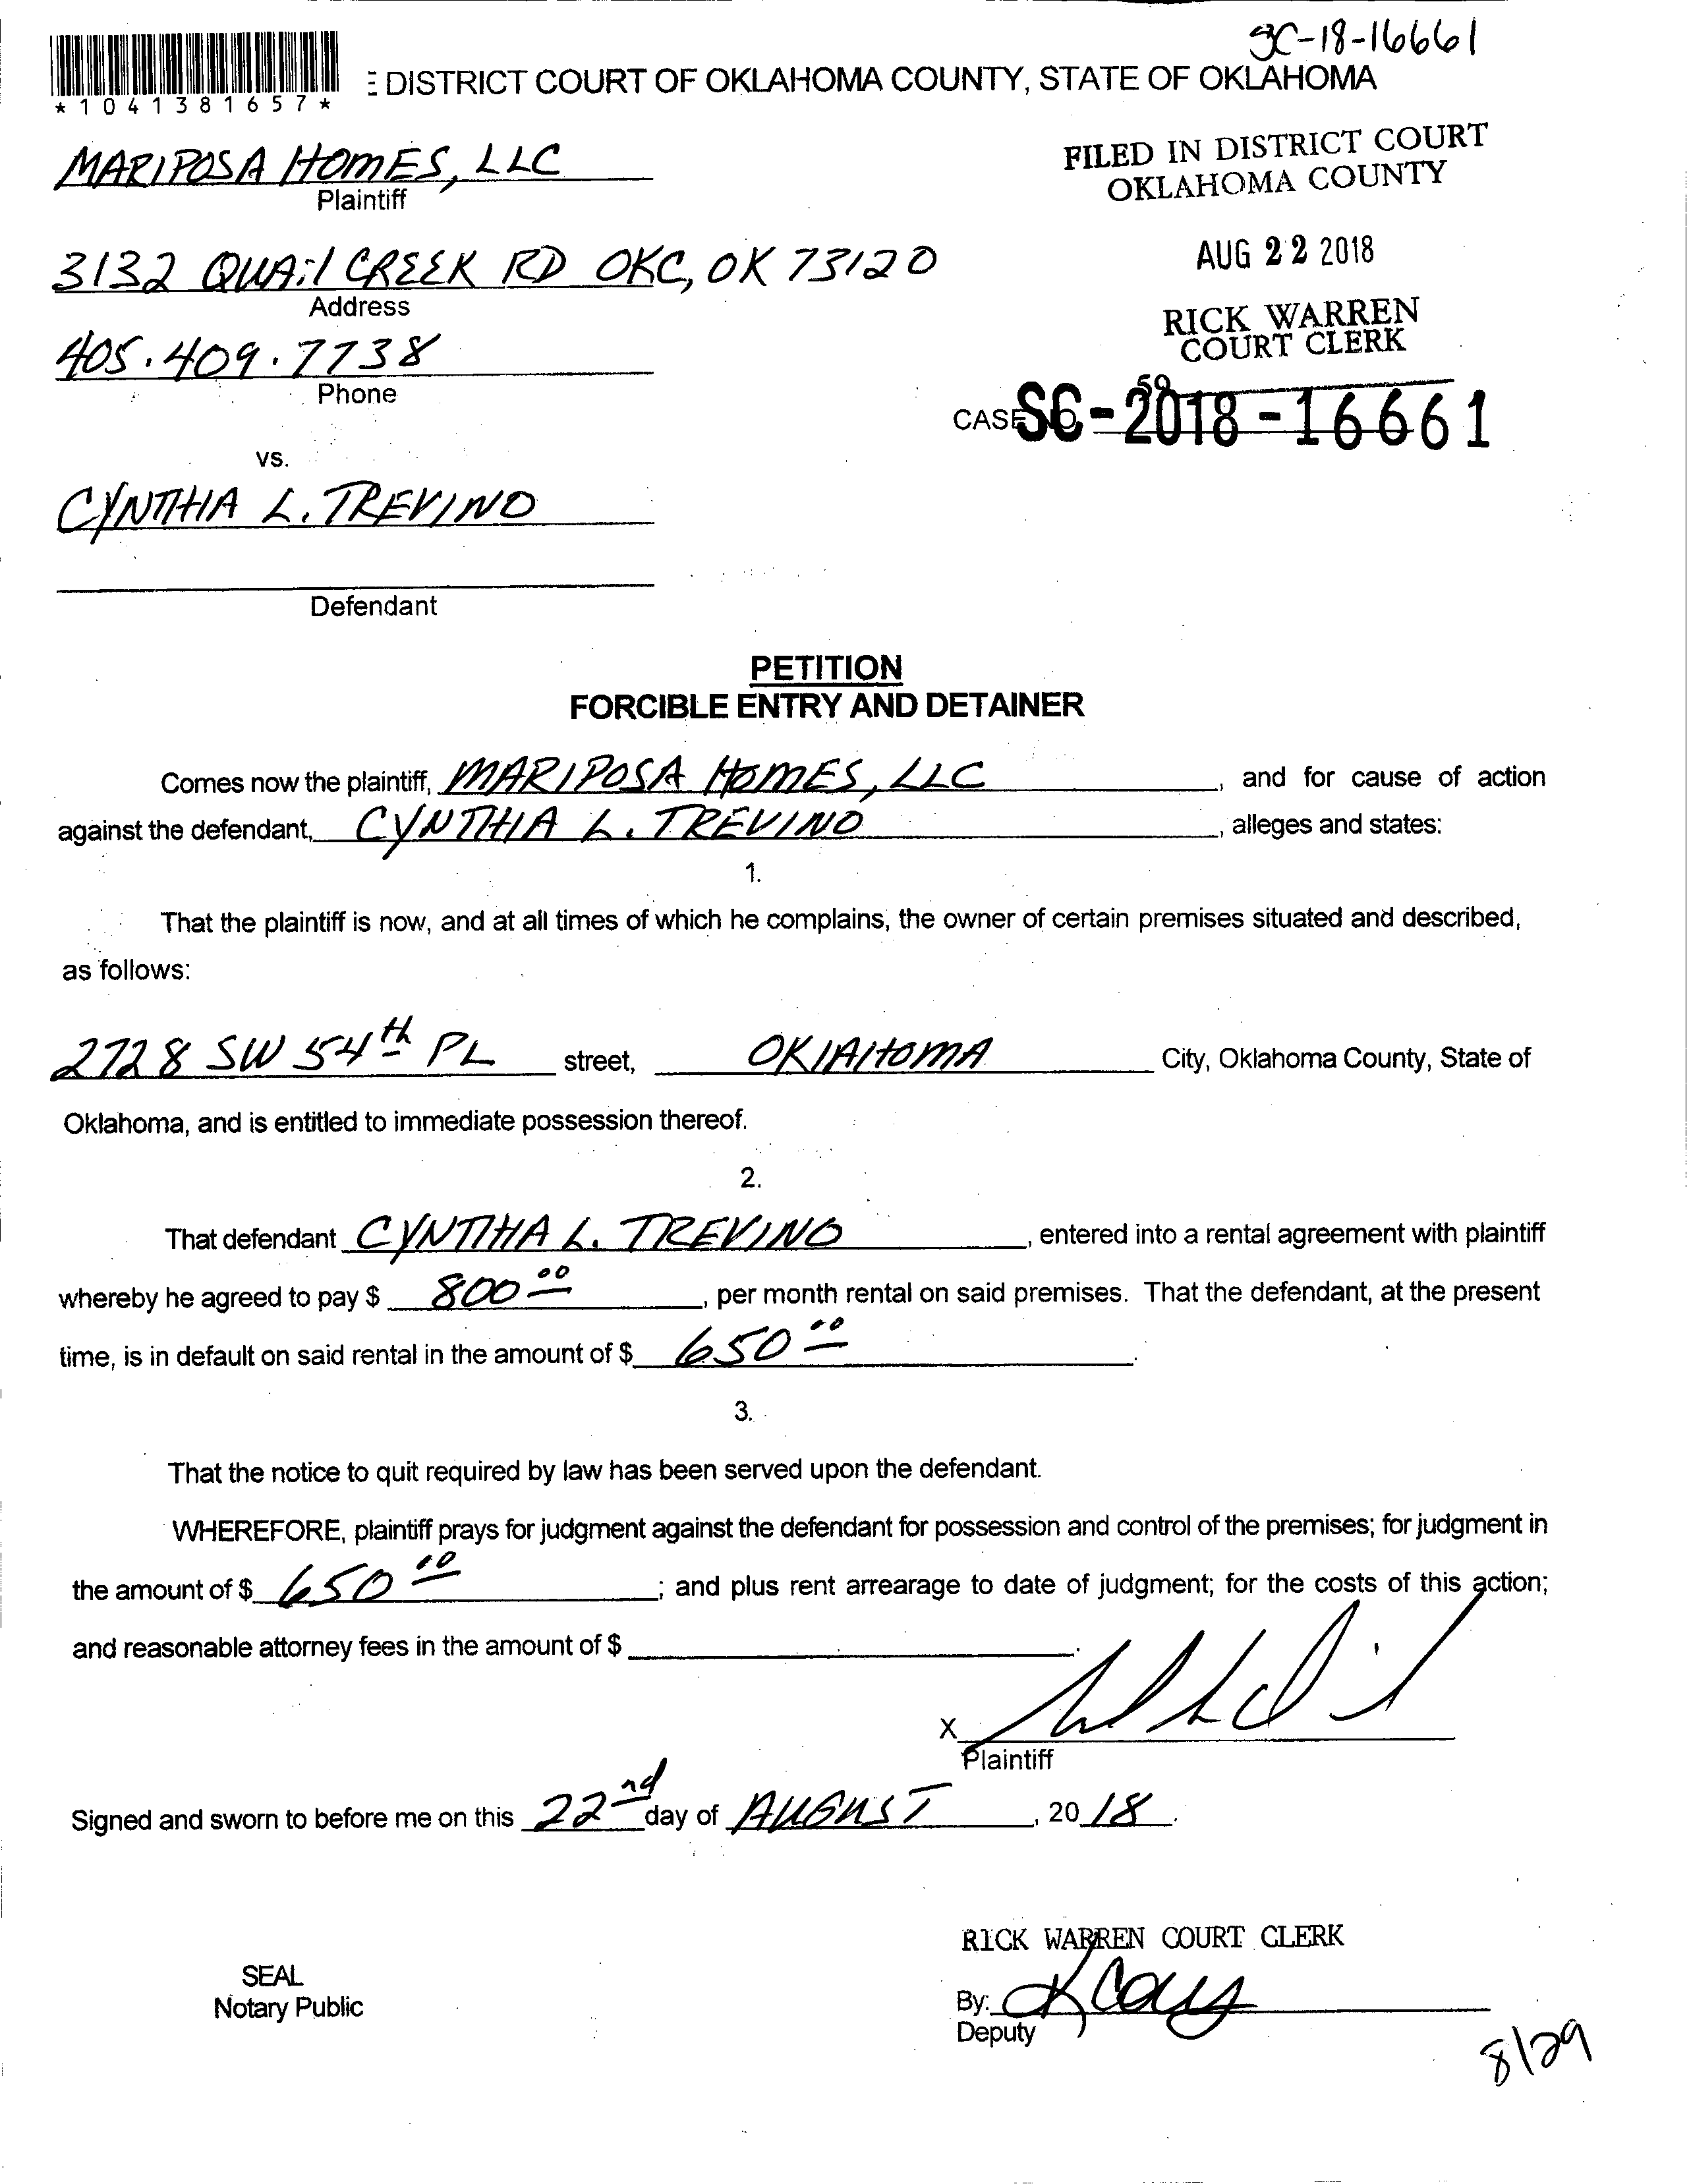 SC-18-16661
*1041381657*
E DISTRICT COURT OF OKLAHOMA COUNTY, STATE OF OKLAHOMA
MARIPOSA HOMES, LLC
Plaintiff
FILED IN DISTRICT COURT
OKLAHOMA COUNTY
3132 QUAIL CREEK RD OKC, OK 73120
Address
AUG 22 2018
RICK WARREN
COURT CLERK
405.409.7738
Phone
59
CASE NO. SC-2018-16661
vs.
CYNTHIA L. TREVINO
Defendant
PETITION
FORCIBLE ENTRY AND DETAINER
Comes now the plaintiff, MARIPOSA HOMES, LLC, and for cause of action
against the defendant, CYNTHIA L. TREVINO, alleges and states:
1.
That the plaintiff is now, and at all times of which he complains, the owner of certain premises situated and described,
as follows:
2728 SW 54th PL street, OKLAHOMA City, Oklahoma County, State of
Oklahoma, and is entitled to immediate possession thereof.
2.
That defendant CYNTHIA L. TREVINO, entered into a rental agreement with plaintiff
whereby he agreed to pay $ 800 00, per month rental on said premises. That the defendant, at the present
time, is in default on said rental in the amount of $ 650 00.
3.
That the notice to quit required by law has been served upon the defendant.
WHEREFORE, plaintiff prays for judgment against the defendant for possession and control of the premises; for judgment in
the amount of $ 650 00; and plus rent arrearage to date of judgment; for the costs of this action;
and reasonable attorney fees in the amount of $ .
X
Plaintiff
Signed and sworn to before me on this 22nd day of AUGUST, 2018.
RICK WARREN COURT CLERK
SEAL
Notary Public
By:
Deputy
8/29